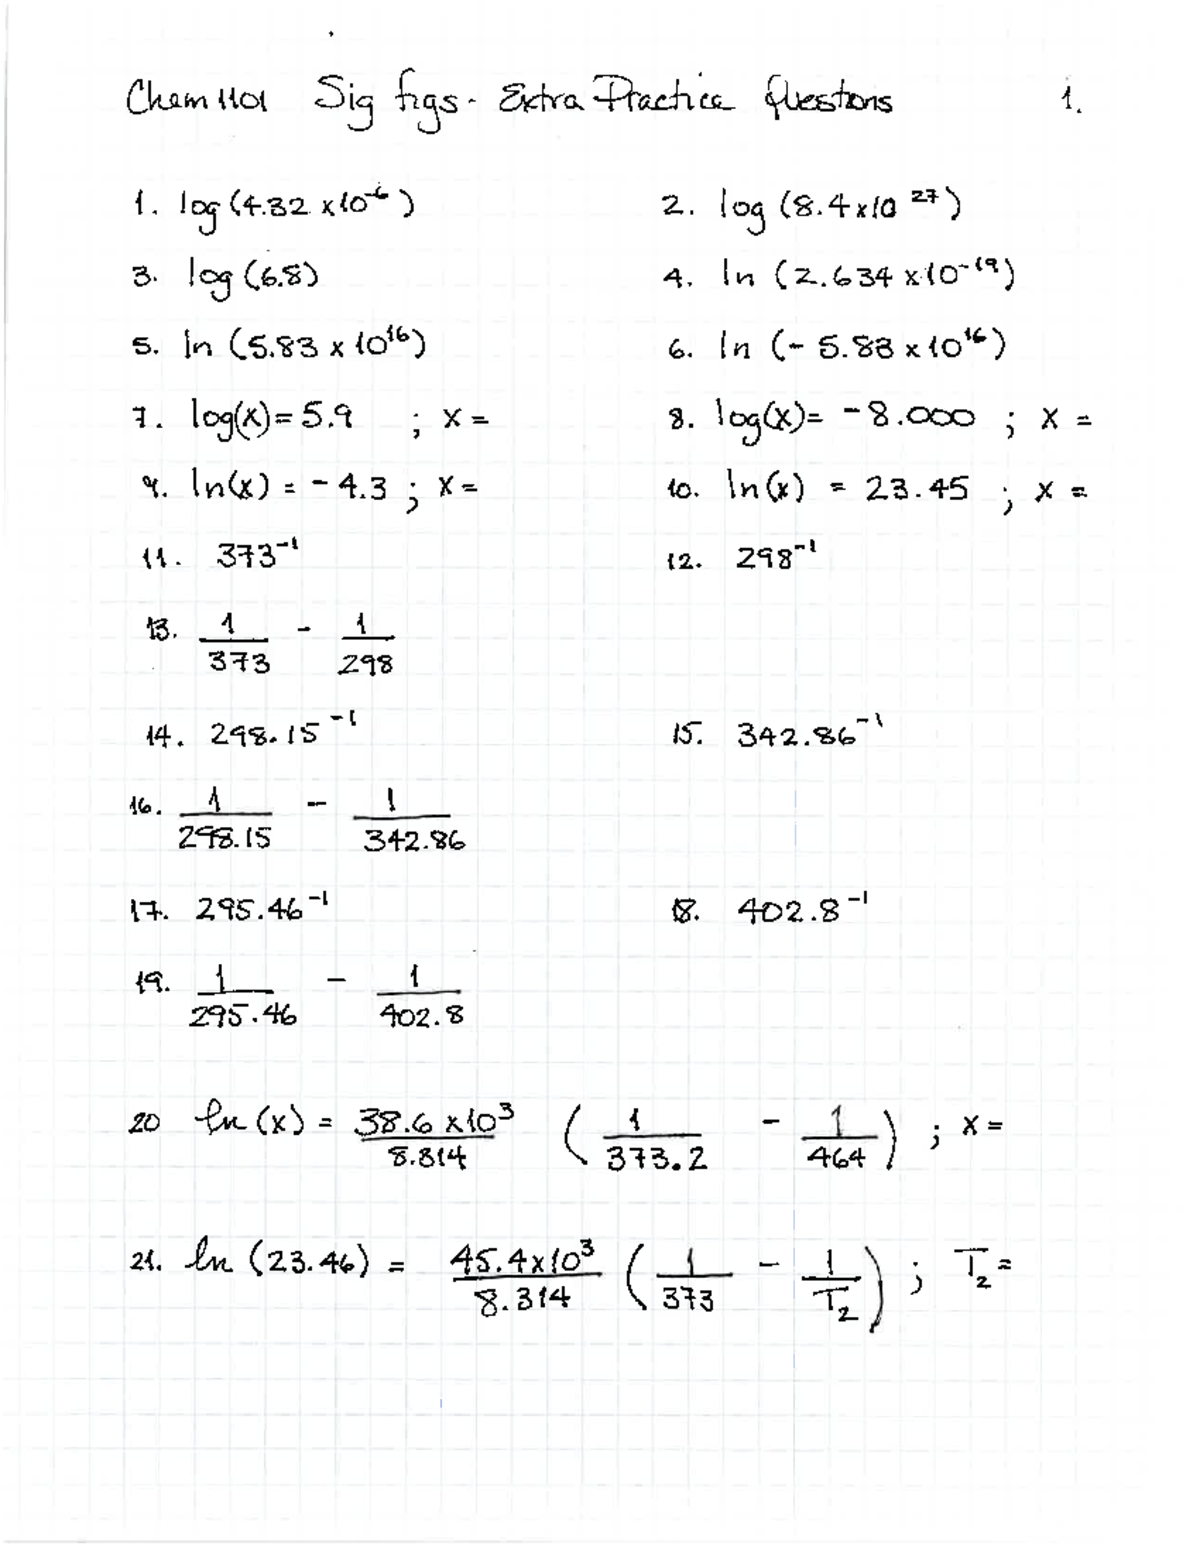 Chem 1101 Sig figs - Extra Practice Questions 1.
1. log (4.32 x10⁻⁶) 2. log (8.4x10²⁷)
3. log (6.8) 4. ln (2.634 x10⁻¹⁹)
5. ln (5.83 x 10¹⁶) 6. ln (- 5.83 x 10¹⁶)
7. log(x) = 5.9 ; x = 8. log(x) = -8.000 ; x =
9. ln(x) = -4.3 ; x = 10. ln(x) = 23.45 ; x =
11. 373⁻¹ 12. 298⁻¹
13. 1/373 - 1/298
14. 298.15⁻¹ 15. 342.86⁻¹
16. 1/298.15 - 1/342.86
17. 295.46⁻¹ 18. 402.8⁻¹
19. 1/295.46 - 1/402.8
20 ln (x) = 38.6 x10³/8.314 (1/373.2 - 1/464) ; x =
21. ln (23.46) = 45.4x10³/8.314 (1/373 - 1/T₂) ; T₂ =